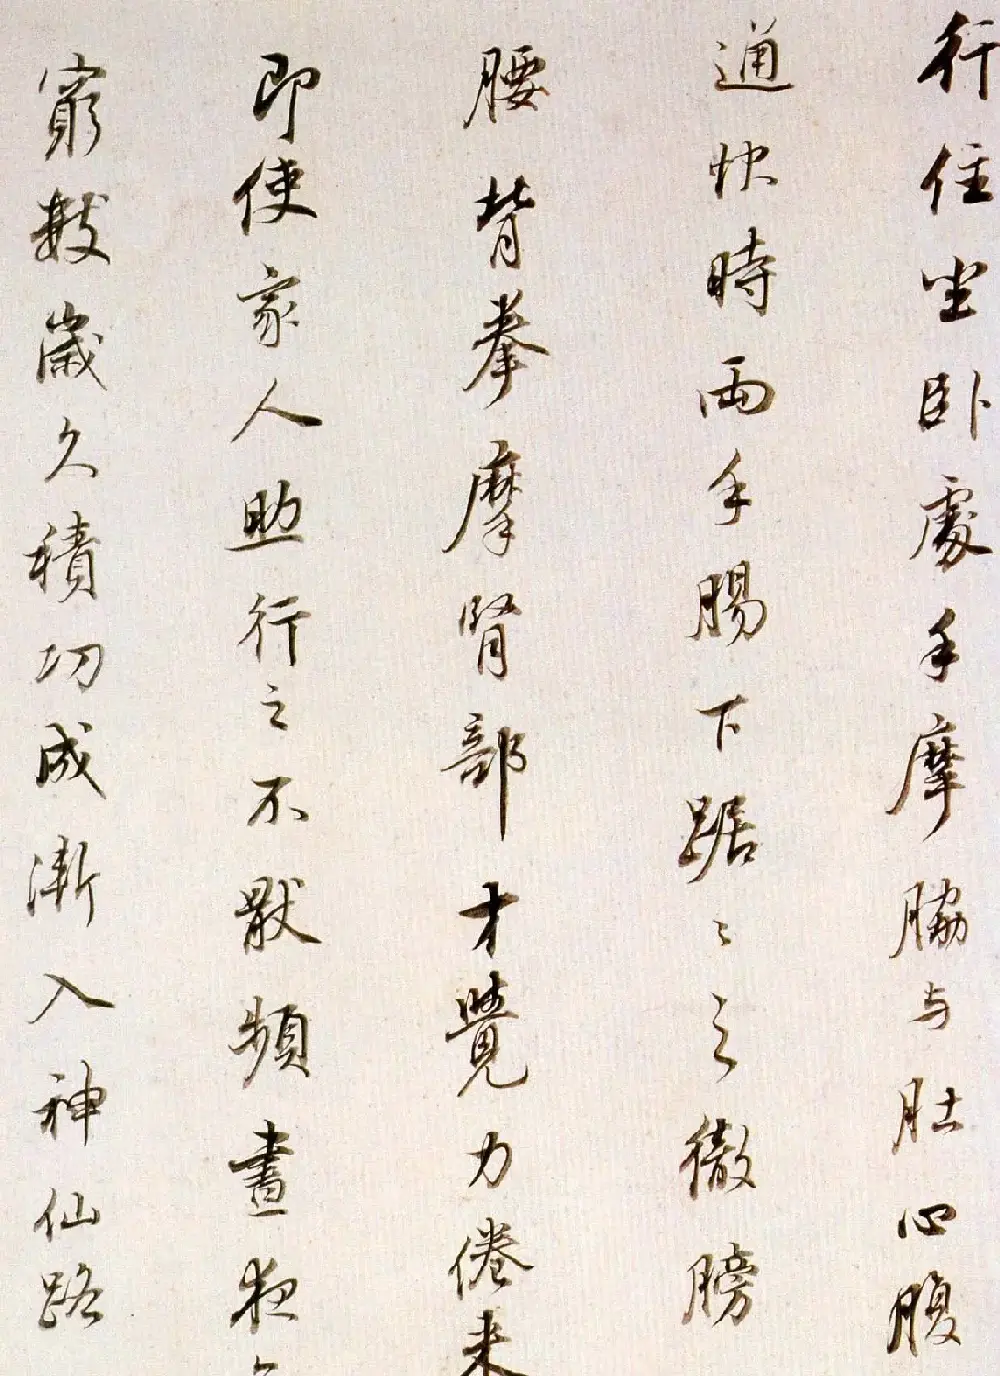 行住坐卧處手摩脇与肚心腹
通快時兩手腸下踞〻之徹膀
腰背拳摩腎部才覺力倦来
即使家人助行之不厭頻晝夜
窮數歲久積功成漸入神仙路